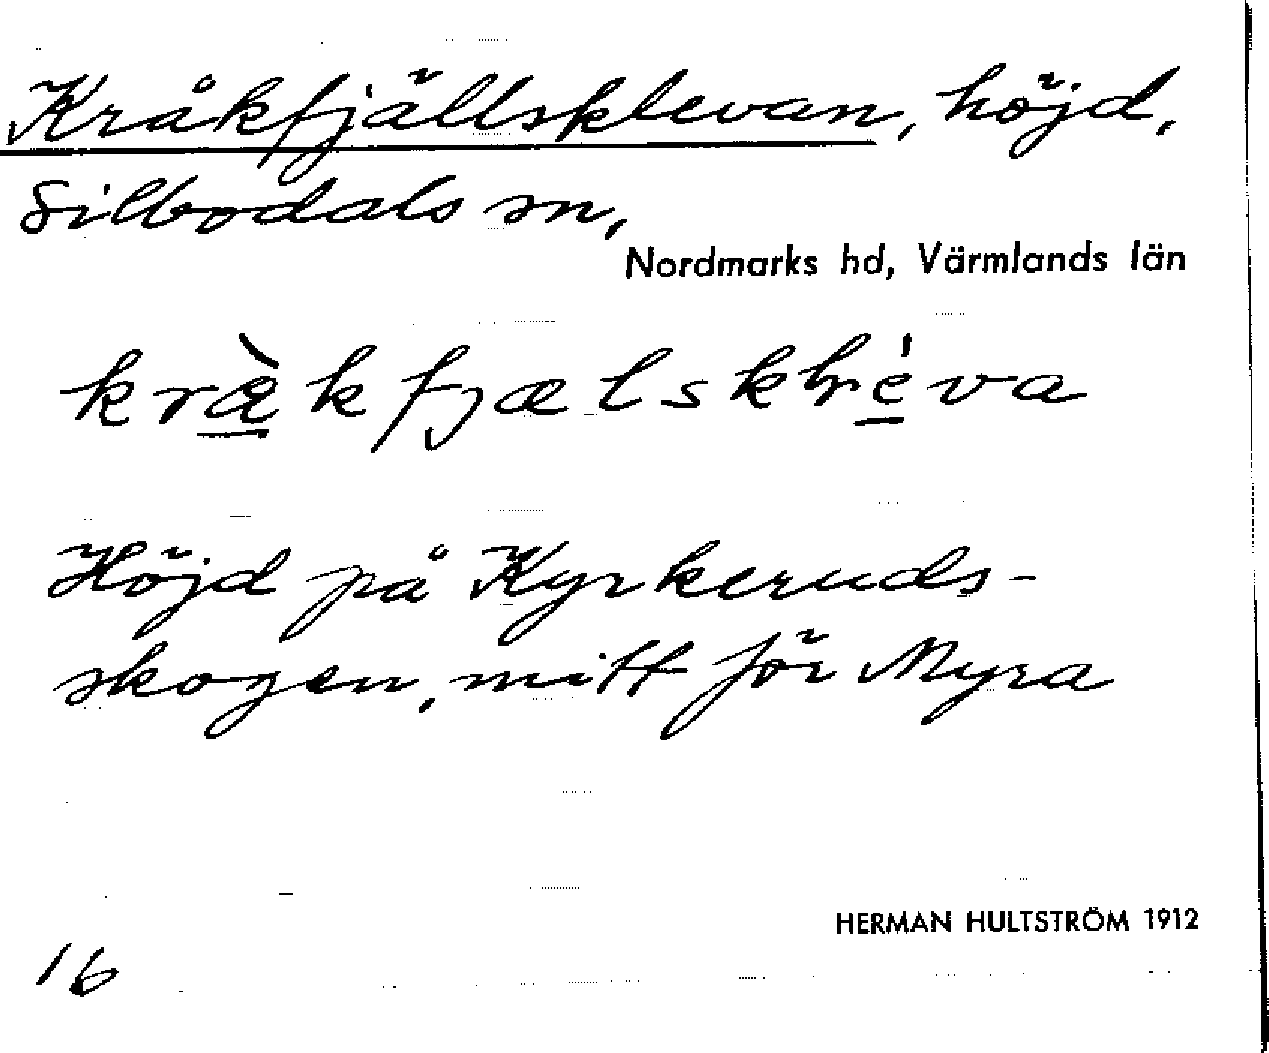 Kråkfjällsklevan, höjd,
Silbodals sn,
Nordmarks hd, Värmlands län
Höjd på Kyrkeruds-
skogen, mitt för Myra
HERMAN HULTSTRÖM 1912
16